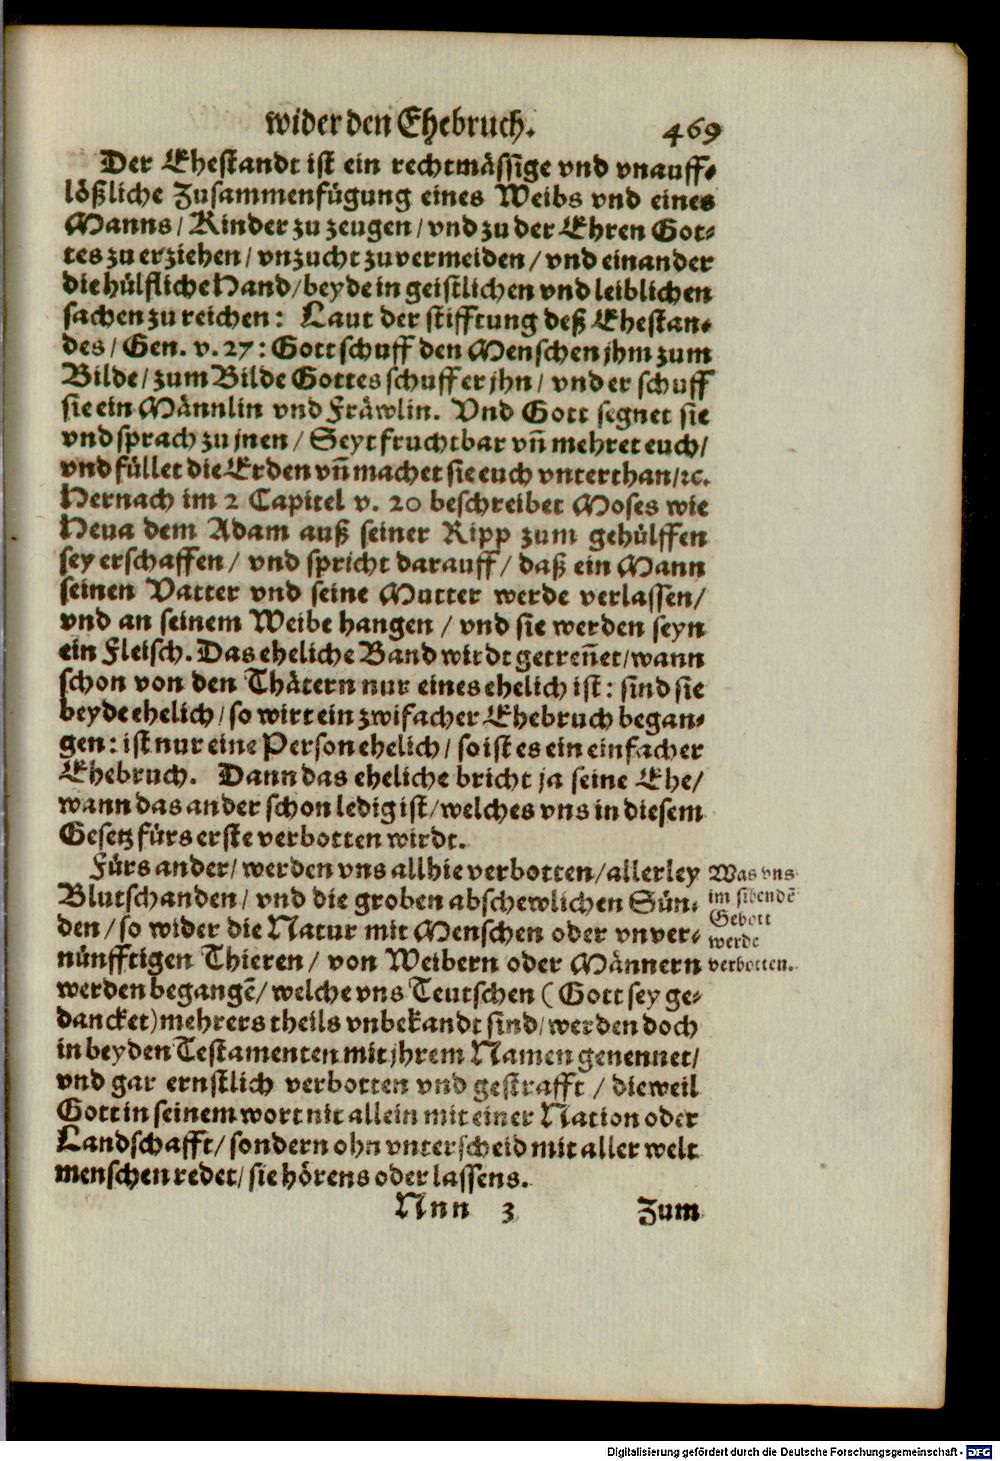 wider den Ehebruch. 469
Der Ehestandt ist ein rechtmässige vnd vnauff-
lößliche Zusammenfügung eines Weibs vnd eines
Manns/ Kinder zu zeugen/ vnd zu der Ehren Got-
tes zu erziehen/ vnzucht zuvermeiden/ vnd einander
die hülfliche Hand/ beyde in geistlichen vnd leiblichen
sachen zu reichen: Laut der stifftung deß Ehestan-
des/ Gen. v. 27: Gott schuff den Menschen jhm zum
Bilde/ zum Bilde Gottes schuff er jhn/ vnd er schuff
sie ein Männlin vnd Fräwlin. Vnd Gott segnet sie
vnd sprach zu jnen/ Seyt fruchtbar vn̄ mehret euch/
vnd füllet die Erden vn̄ machet sie euch vnterthan/ ꝛc.
Hernach im 2 Capitel v. 20 beschreibet Moses wie
Heua dem Adam auß seiner Ripp zum gehülffen
sey erschaffen/ vnd spricht darauff/ daß ein Mann
seinen Vatter vnd seine Mutter werde verlassen/
vnd an seinem Weibe hangen/ vnd sie werden seyn
ein Fleisch. Das eheliche Band wirdt getren̄et/ wann
schon von den Thätern nur eines ehelich ist: sind sie
beyde ehelich/ so wirt ein zwifacher Ehebruch began-
gen: ist nur eine Person ehelich/ so ist es ein einfacher
Ehebruch. Dann das eheliche bricht ja seine Ehe/
wann das ander schon ledig ist/ welches vns in diesem
Gesetz fürs erste verbotten wirdt.
Fürs ander/ werden vns allhie verbotten/ allerley
Blutschanden/ vnd die groben abschewlichen Sün-
den/ so wider die Natur mit Menschen oder vnver-
nünfftigen Thieren/ von Weibern oder Männern
werden begangē/ welche vns Teutschen (Gott sey ge-
dancket) mehrers theils vnbekandt sind/ werden doch
in beyden Testamenten mit jhrem Namen genennet/
vnd gar ernstlich verbotten vnd gestrafft/ dieweil
Gott in seinem wort nit allein mit einer Nation oder
Landschafft/ sondern ohn vnterscheid mit aller welt
menschen redet/ sie hörens oder lassens.
Was vns
im sibendē
Gebott
werde
verbotten.
Nnn 3 Zum
Digitalisierung gefördert durch die Deutsche Forschungsgemeinschaft - DFG